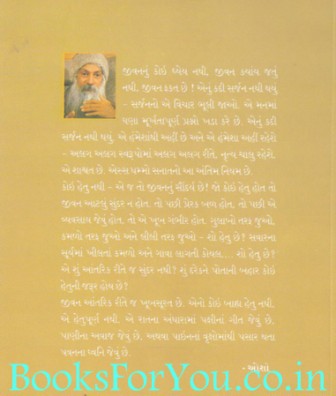 જીવનનું કોઈ ધ્યેય નથી. જીવન ક્યાંય જતું
નથી. જીવન ફકત છે ! એનું કદી સર્જન નથી થયું
- સર્જનનો એ વિચાર ભૂલી જાઓ. એ મનમાં
ઘણા મૂર્ખતાપૂર્ણ પ્રશ્નો ખડા કરે છે. એનું કદી
સર્જન નથી થયું. એ હંમેશાથી અહીં છે અને એ હંમેશા અહીં રહેશે
- અલગ અલગ સ્વરૂપોમાં અલગ અલગ રીતે. નૃત્ય ચાલુ રહેશે.
એ શાશ્વત છે. એસ્સ ધમ્મો સનાતનો આ અંતિમ નિયમ છે.
કોઈ હેતુ નથી - એ જ તો જીવનનું સૌંદર્ય છે! જો કોઈ હેતુ હોત તો
જીવન આટલું સુંદર ન હોત. તો પછી પ્રેરક બળ હોત. તો પછી એ
વ્યવસાય જેવું હોત. તો એ ખૂબ ગંભીર હોત. ગુલાબો તરફ જુઓ,
કમળો તરફ જુઓ અને લીલી તરફ જુઓ - શો હેતુ છે? સવારના
સૂર્યમાં ખીલતાં કમળો અને ગાવા લાગતી કોયલ.... શો હેતુ છે?
એ શું આંતરિક રીતે જ સુંદર નથી? શું દરેકને પોતાની બહાર કોઈ
હેતુની જરૂર હોય છે?
જીવન આંતરિક રીતે જ ખૂબસૂરત છે. એનો કોઈ બાહ્ય હેતુ નથી.
એ હેતુપૂર્ણ નથી. એ રાતના અંધારામાં પક્ષીનાં ગીત જેવું છે.
પાણીના અવાજ જેવું છે. અથવા પાઈનનાં વૃક્ષોમાંથી પસાર થતા
પવનના ધ્વનિ જેવું છે.
- ઓશો
BooksForYou.co.in